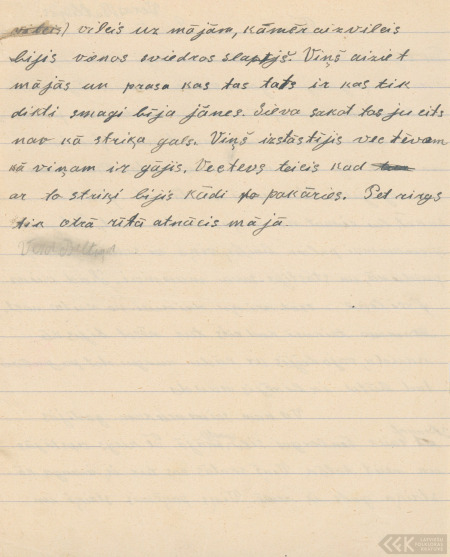 vilcis uz mājām, kāmēr aizvilcis
bijis vienos sviedros slapjš. Viņš aiziet
mājās un prasa kas tas tāts ir kas tik
dikti smagi bija jānes. Sieva sakot tas ju cits
nav kā striķa gals. Viņš izstāstījis vectēvam
kā viņam ir gājis. Vectevs teicis kad
ar to striķi bijis kādi pakāries. Pet
tik otrā rītā atnācis mājā.